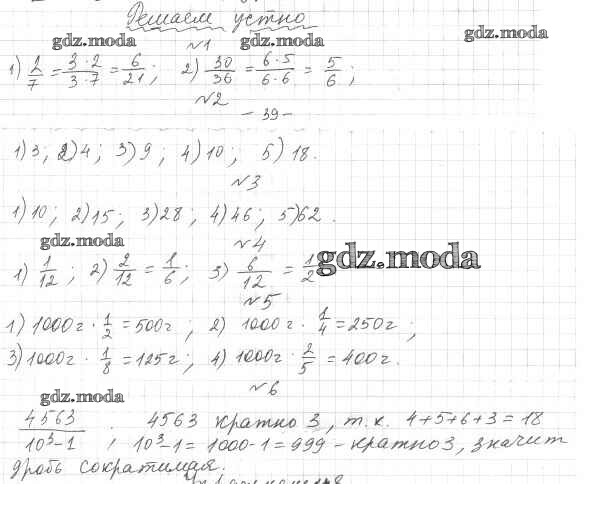 Решаем устно
gdz.moda gdz.moda gdz.moda
№1
1) 2/7 = 3·2/3·7 = 6/21; 2) 30/36 = 6·5/6·6 = 5/6;
№2
- 39 -
1) 3; 2) 4; 3) 9; 4) 10; 5) 18.
№3
1) 10; 2) 15; 3) 28; 4) 46; 5) 62.
gdz.moda
№4
1) 1/12; 2) 2/12 = 1/6; 3) 6/12 = 1/2 gdz.moda
№5
1) 1000г · 1/2 = 500г; 2) 1000г · 1/4 = 250г;
3) 1000г · 1/8 = 125г; 4) 1000г · 2/5 = 400г.
№6
gdz.moda
4563/10³-1. 4563 кратно 3, т.к. 4+5+6+3=18
, 10³-1 = 1000-1 = 999 - кратно 3, значит
дробь сократимая.